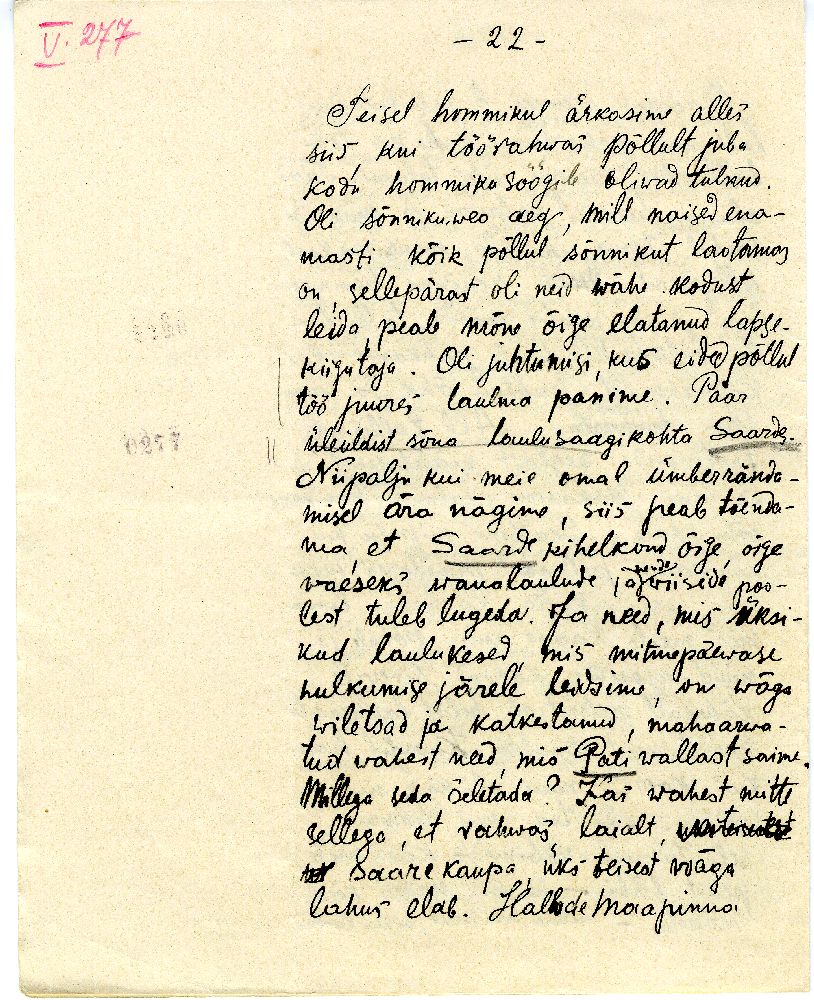 V. 277
- 22 -
Teisel hommikul ärkasime alles
siis, kui töörahwas põllult juba
kodu hommiku söögile oliwad tulnud.
Oli sõnnikuweo aeg, mill naised ena-
masti kõik põllul sõnnikut laotamas
on, sellepärast oli neid wähe kodust
leida, peale mõne õige elatanud lapse-
kiigutaja. Oli juhtumisi, kus eided põllul
töö juures laulma panime. Paar
üleüldist sõna laulusaagi kohta Saarde.
Niipalju kui meie omal ümberrända-
misel ära nägime, siis peab tõenda-
ma, et Saarde kihelkond õige, õige
waeseks wanalaulude ja nende wiiside poo-
lest tuleb lugeda. Ja need, mis üksi-
kud laulukesed, mis mitmepäewase
hulkumise järele leidsime, on wäga
wiletsad ja katkestanud, mahaarwa-
tud wahest need, mis Pati wallast saime.
Millega seda seletada? Kas wahest mitte
sellega, et rahwas laialt,
saarekaupa, üks teisest wäga
lahus elab. Halbde maapinna
0277